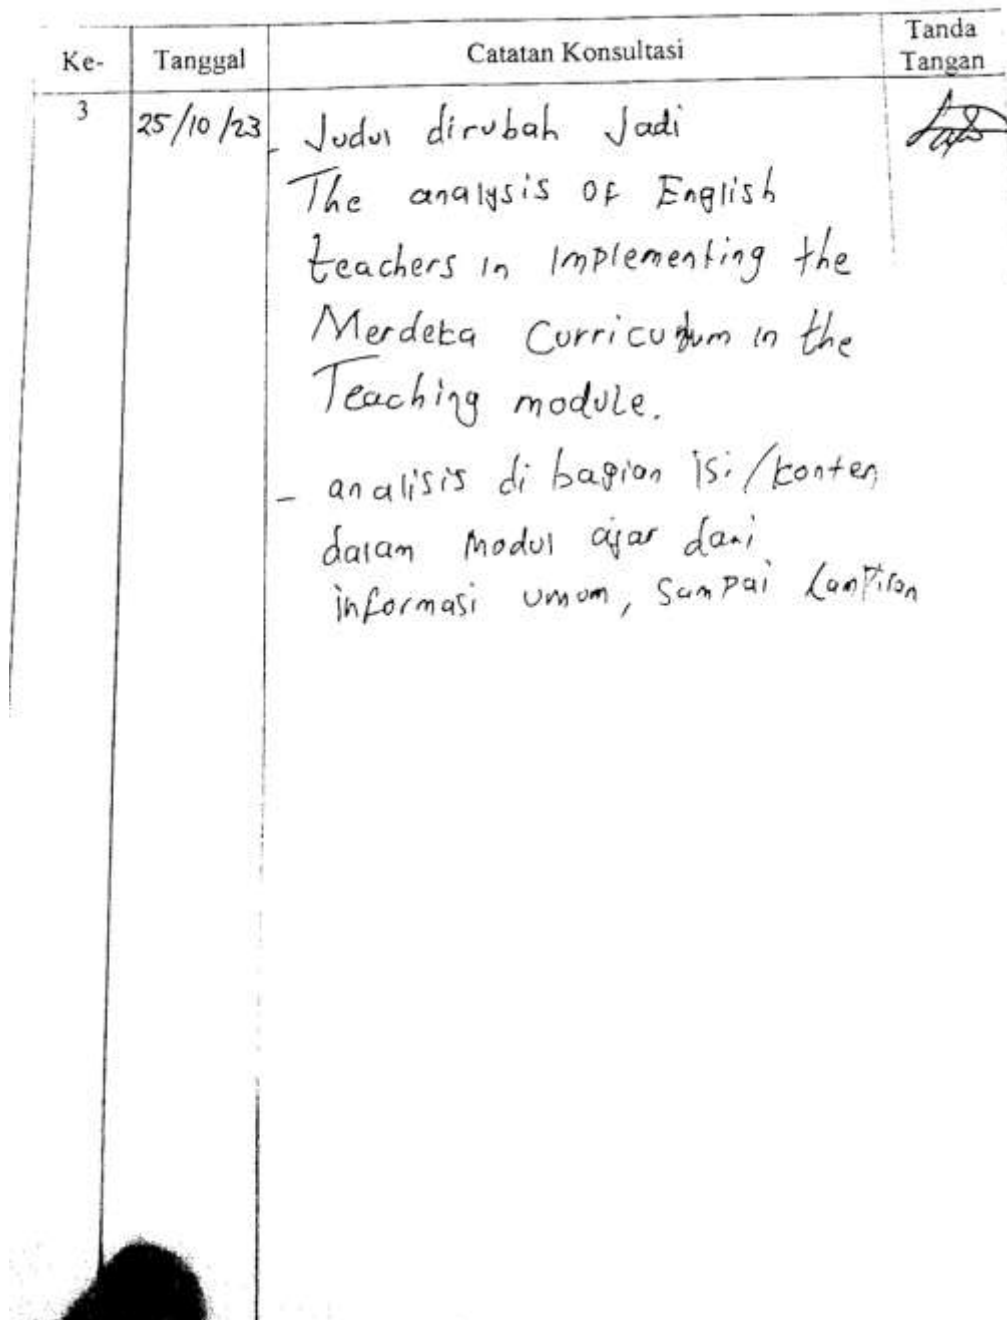 Ke-
Tanggal
Catatan Konsultasi
Tanda
Tangan
3
25/10/23
- Judul dirubah Jadi
The analysis of English
teachers in Implementing the
Merdeka Curriculum in the
Teaching module.
- analisis di bagian isi/konten
dalam Modul ajar dari
informasi umum, Sampai Lampiran